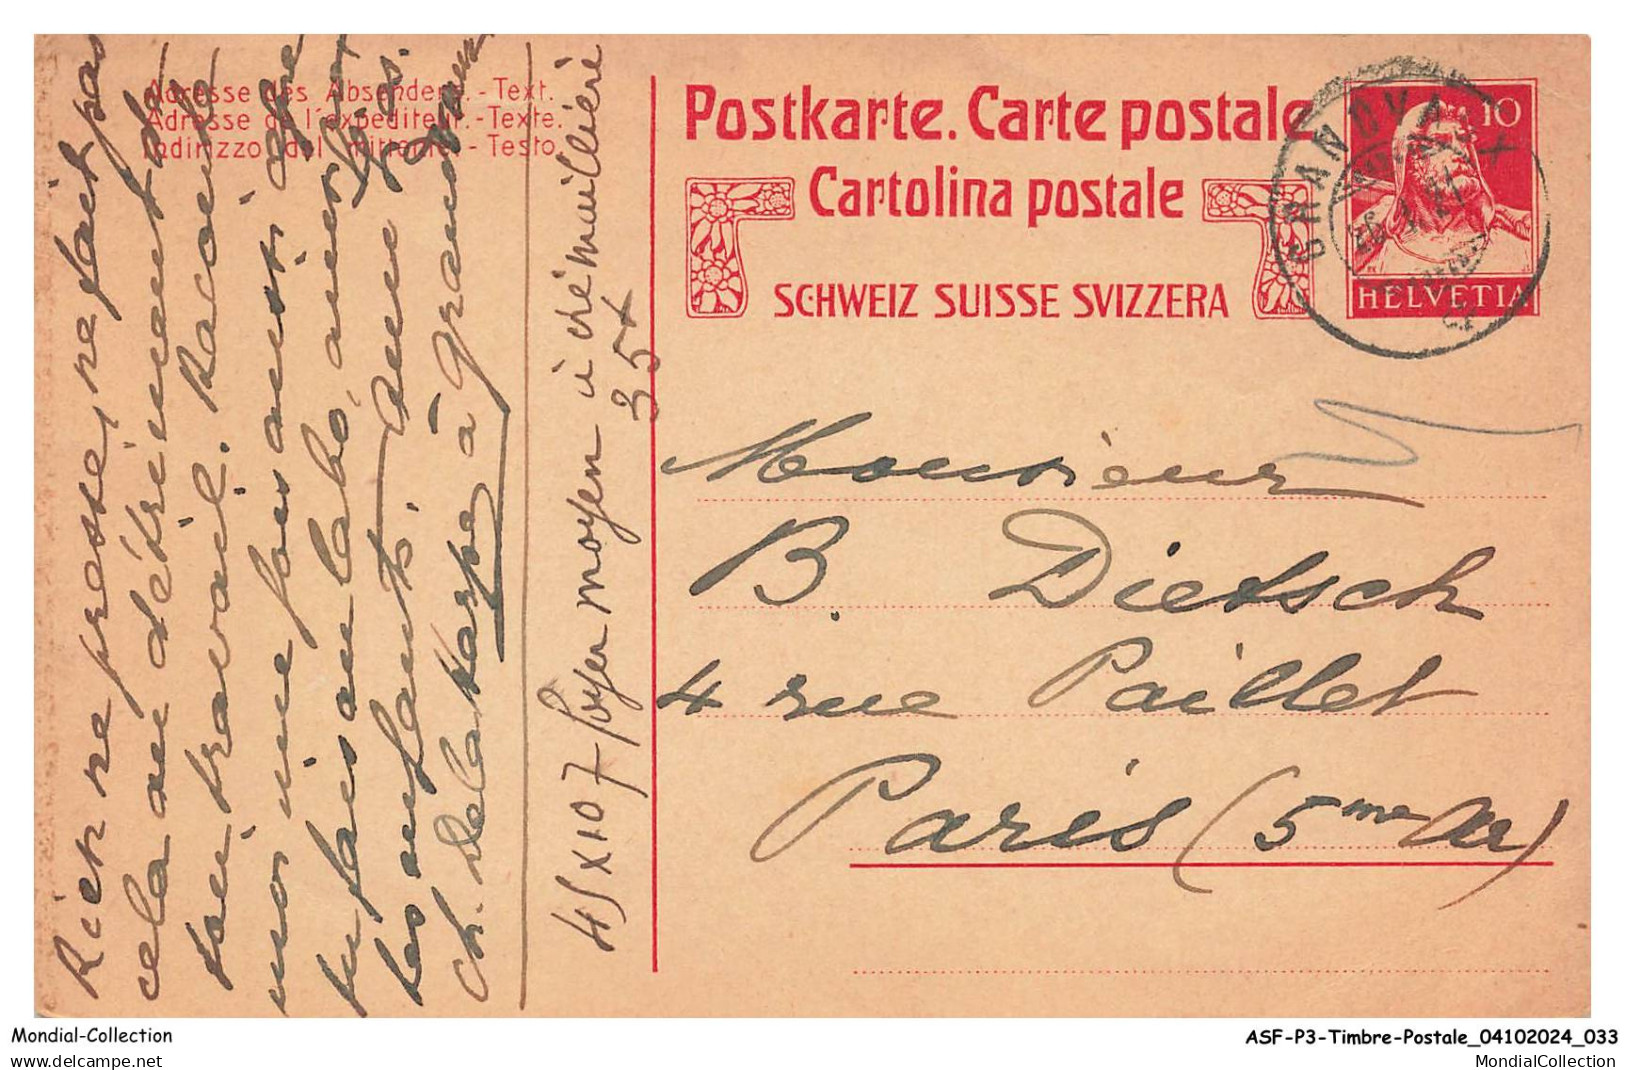 Adresse des Absenders. - Text.
Adresse de l'expéditeur. - Texte.
Indirizzo del mittente. - Testo.
Postkarte. Carte postale
Cartolina postale
SCHWEIZ SUISSE SVIZZERA
10
HELVETIA
GRANDVAUX
Monsieur
B. Dietsch
4 rue Paillet
Paris (5me Ar)
Rien ne presse, ne fait pas
cela au détriment de
ton travail. Raconte
moi une fois aussi ce que
tu fais au labo,
les enfants.
Ch. Delaharpe à Grandvaux
45 x 107 Foyer moyen à crémaillière
35+
Mondial-Collection
www.delcampe.net
ASF-P3-Timbre-Postale_04102024_033
MondialCollection